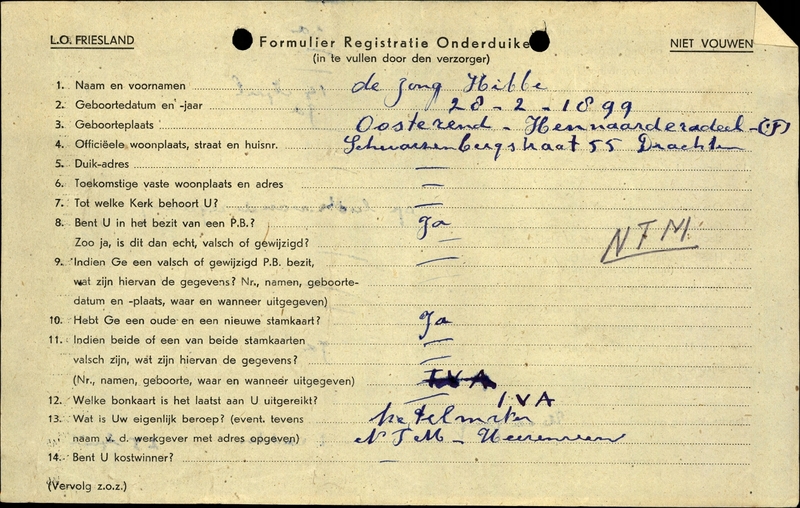 L.O. FRIESLAND
Formulier Registratie Onderduike
NIET VOUWEN
(in te vullen door den verzorger)
1. Naam en voornamen de Jong Hille
2. Geboortedatum en -jaar 28-2-1899
3. Geboorteplaats Oosterend - Hennaarderadeel - (F)
4. Officiëele woonplaats, straat en huisnr. Schwarzenbergstraat 55 Drachten
5. Duik-adres —
6. Toekomstige vaste woonplaats en adres —
7. Tot welke Kerk behoort U? —
8. Bent U in het bezit van een P.B.? Ja
Zoo ja, is dit dan echt, valsch of gewijzigd? —
NTM.
9. Indien Ge een valsch of gewijzigd P.B. bezit, —
wat zijn hiervan de gegevens? Nr., namen, geboorte-
datum en -plaats, waar en wanneer uitgegeven)
10. Hebt Ge een oude en een nieuwe stamkaart? Ja
11. Indien beide of een van beide stamkaarten —
valsch zijn, wat zijn hiervan de gegevens? —
(Nr., namen, geboorte, waar en wanneer uitgegeven) I.V.A
12. Welke bonkaart is het laatst aan U uitgereikt? — I.V A
13. Wat is Uw eigenlijk beroep? (event. tevens
naam v. d. werkgever met adres opgeven) NTM - Heerenveen
14. Bent U kostwinner? —
(Vervolg z.o.z.)